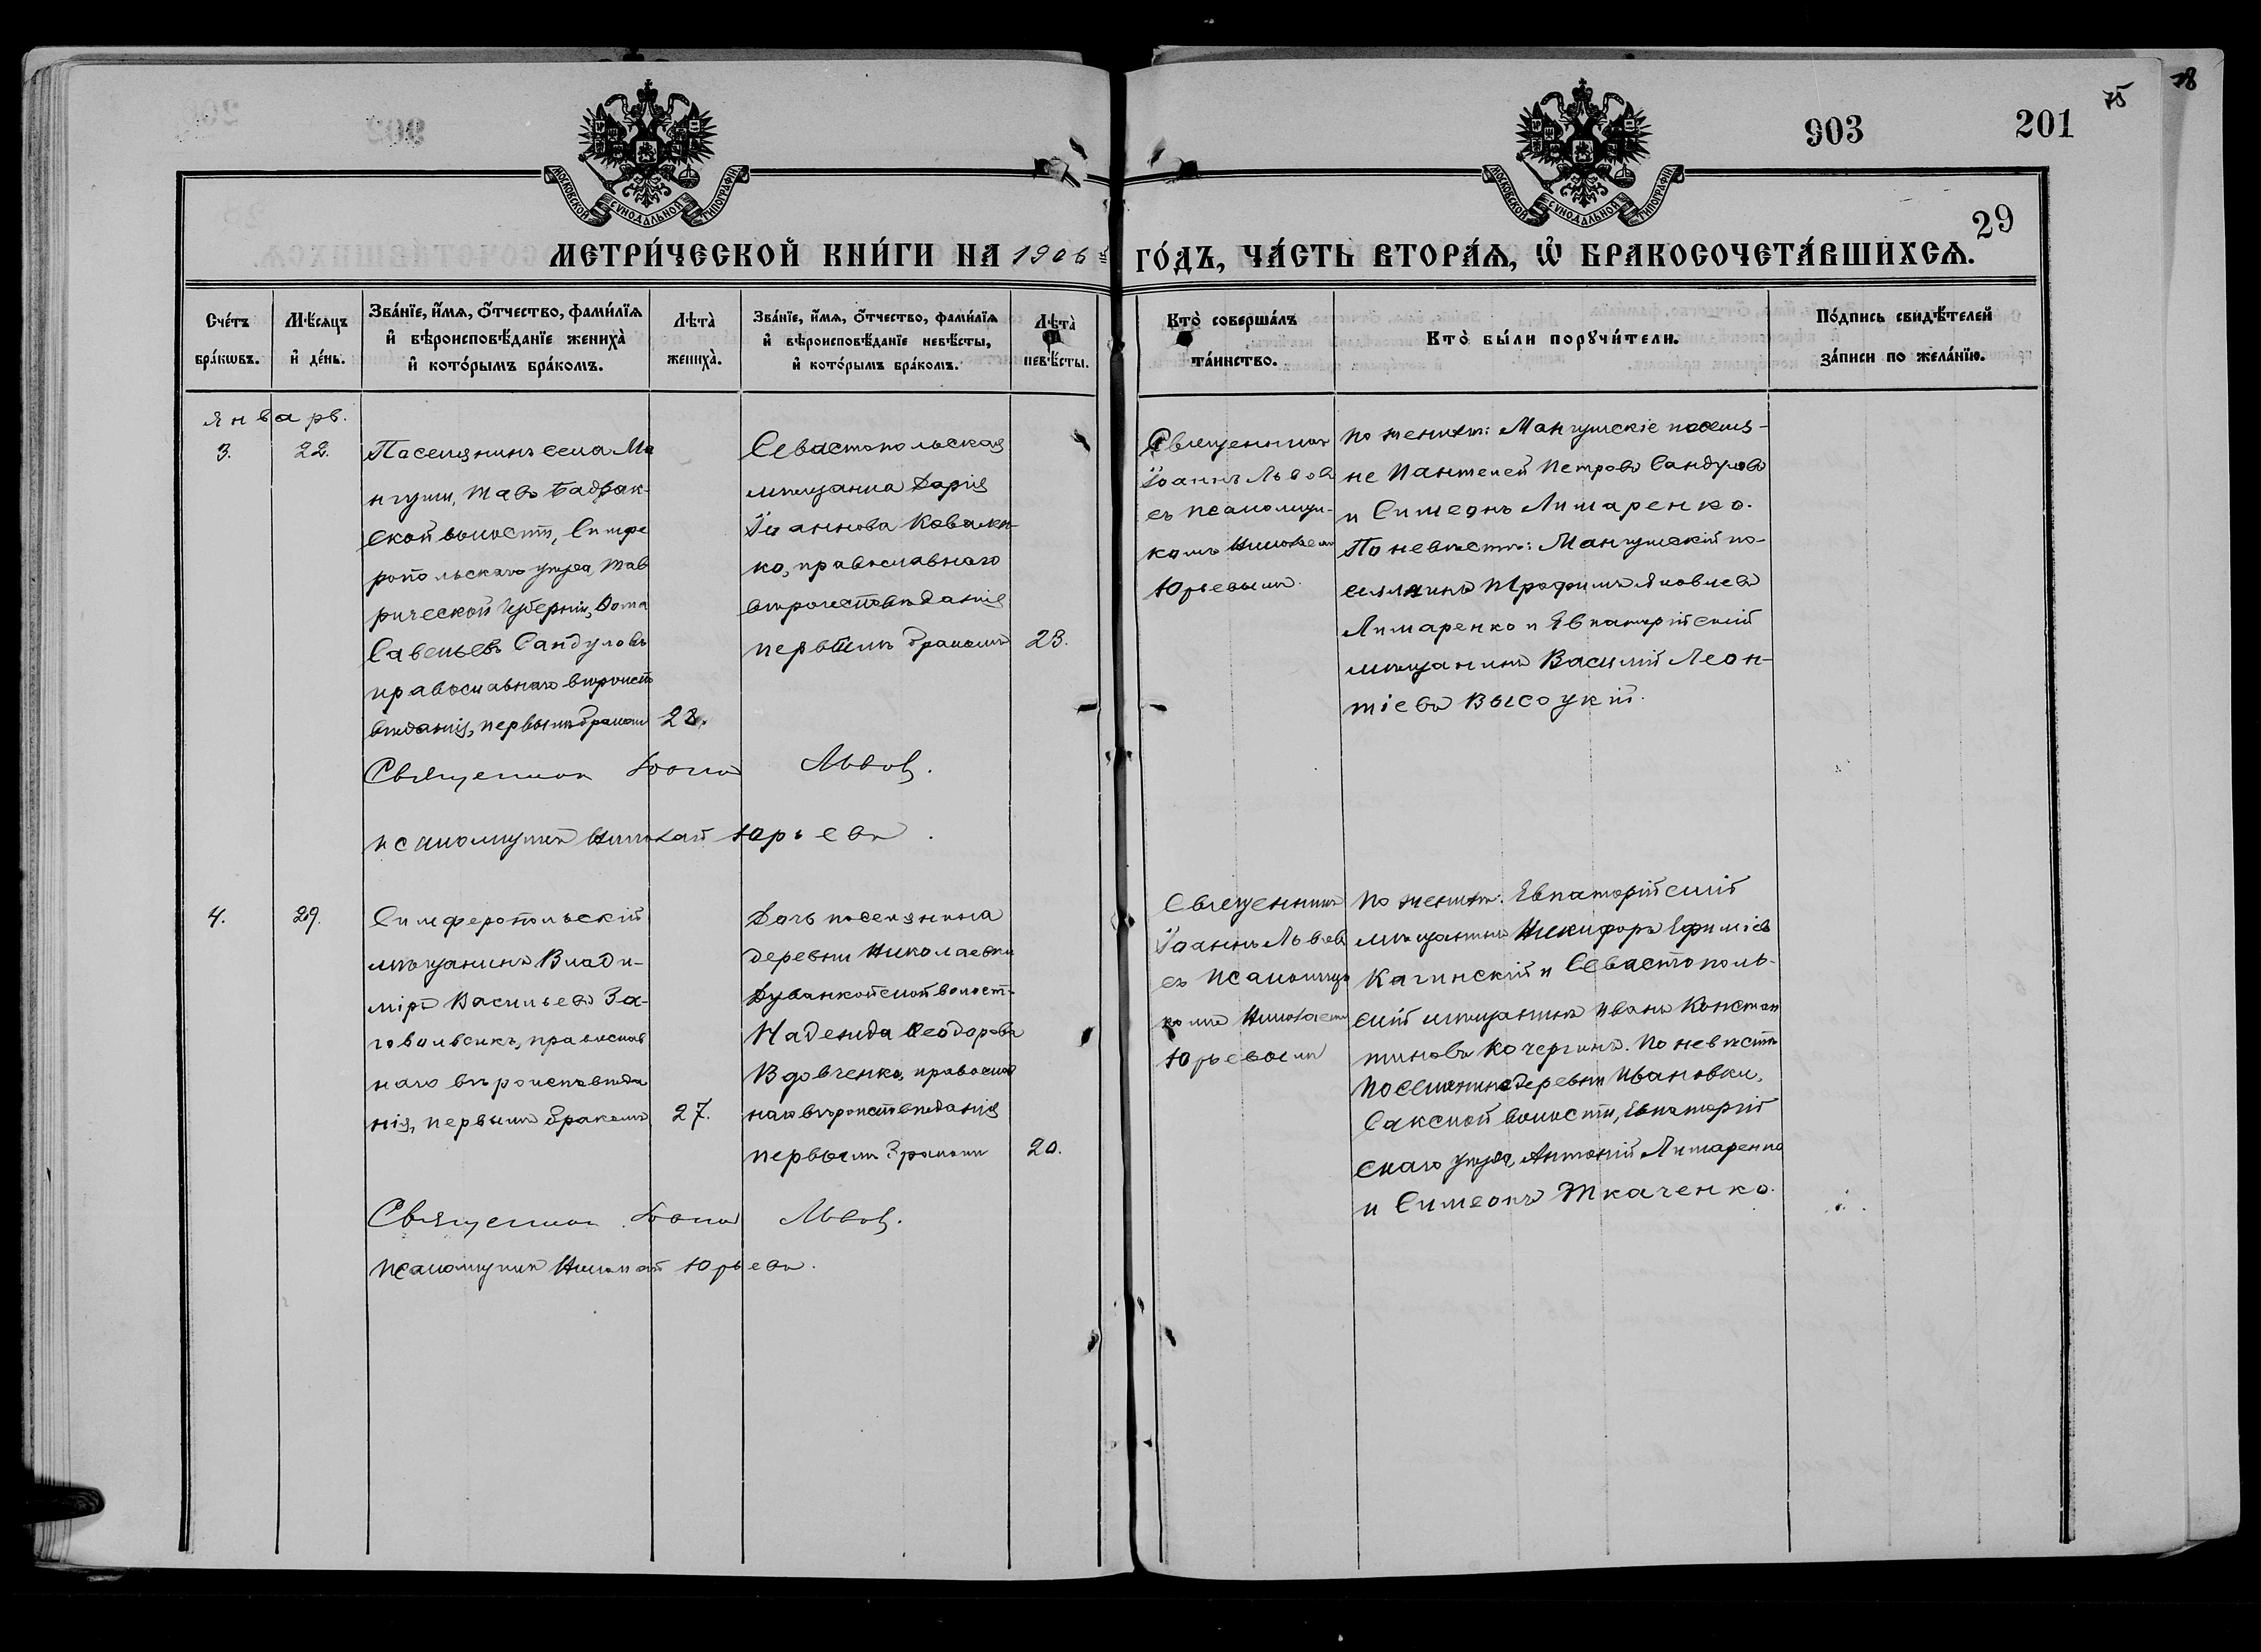 903
201
75
78
29
МОСКОВСКОЙ СѴНОДАЛЬНОЙ ТИПОГРАФІИ
МОСКОВСКОЙ СѴНОДАЛЬНОЙ ТИПОГРАФІИ
МЕТРИ́ЧЕСКОЙ КНИ́ГИ НА 1906й ГО́ДЪ, ЧА́СТЬ ВТОРА́Ѧ, Ѽ БРАКОСОЧЕТА́ВШИХСѦ.
Сче́тъ бра́кѡвъ.
Мѣ́сяцъ и҆ де́нь.
Зва́нїе, и҆́мѧ, ѻ҆́тчество, фами́лїѧ
и҆ вѣроисповѣ́данїе жениха̀
и҆ кото́рымъ бра́комъ.
Лѣта̀ жениха̀.
Зва́нїе, и҆́мѧ, ѻ҆́тчество, фами́лїѧ
и҆ вѣроисповѣ́данїе невѣ́сты,
и҆ кото́рымъ бра́комъ.
Лѣта̀ невѣ́сты.
Кто̀ соверша́лъ
та́инство.
Кто̀ бы́ли порꙋчи́тели.
По́дпись свидѣ́телей
за́писи по жела́нїю.
Январь.
3.
22.
Поселянинъ села Ма
нгуши, Тавъ Бадрак-
ской волости, Симфе
ропольскаго уѣзда, Тав
рической Губерніи, Ѳома
Савельевъ Сандуловъ
православнаго вѣроиспо
вѣданія, первымъ бракомъ
28.
Севастопольская
мѣщанка Дарія
Іоаннова Ковален-
ко, православнаго
вѣроисповѣданія
первымъ бракомъ
23.
Священникъ
Іоаннъ Львовъ
съ псаломщи-
комъ Николаемъ
Юрьевымъ.
по женихѣ: Мангушскіе поселя-
не Пантелей Петровъ Сандуловъ
и Симеонъ Лимаренко.
По невѣстѣ: Мангушскій по-
селянинъ Трофимъ Яковлевъ
Лимаренко и Евпаторійский
мѣщанинъ Василій Леон-
тіевъ Высоцкій.
Священникъ Іоаннъ Львовъ.
псаломщикъ Николай Юрьевъ.
4.
29.
Симферопольскій
мѣщанинъ Влади-
міръ Васильевъ За-
говальскъ, православ
наго вѣроисповѣда
нія, первымъ бракомъ
27.
Дочь поселянина
деревни Николаевки
Дуванкойской волост.
Надежда Ѳеодорова
Вдовченко, православ
наго вѣроисповѣданія
первымъ бракомъ
20.
Священникъ
Іоаннъ Львовъ
съ псаломщи
комъ Николаемъ
Юрьевымъ
по женихѣ: Евпаторійскій
мѣщанинъ Никифоръ Ефиміевъ
Качинскій и Севастополь-
скій мѣщанинъ Иванъ Констан
тиновъ Кочергинъ. По невѣстѣ
поселянинъ деревни Ивановки,
Сакской волости, Евпаторій
скаго уѣзда, Антоній Лимаренко
и Симеонъ Ткаченко.
Священникъ Іоаннъ Львовъ.
псаломщикъ Николай Юрьевъ.